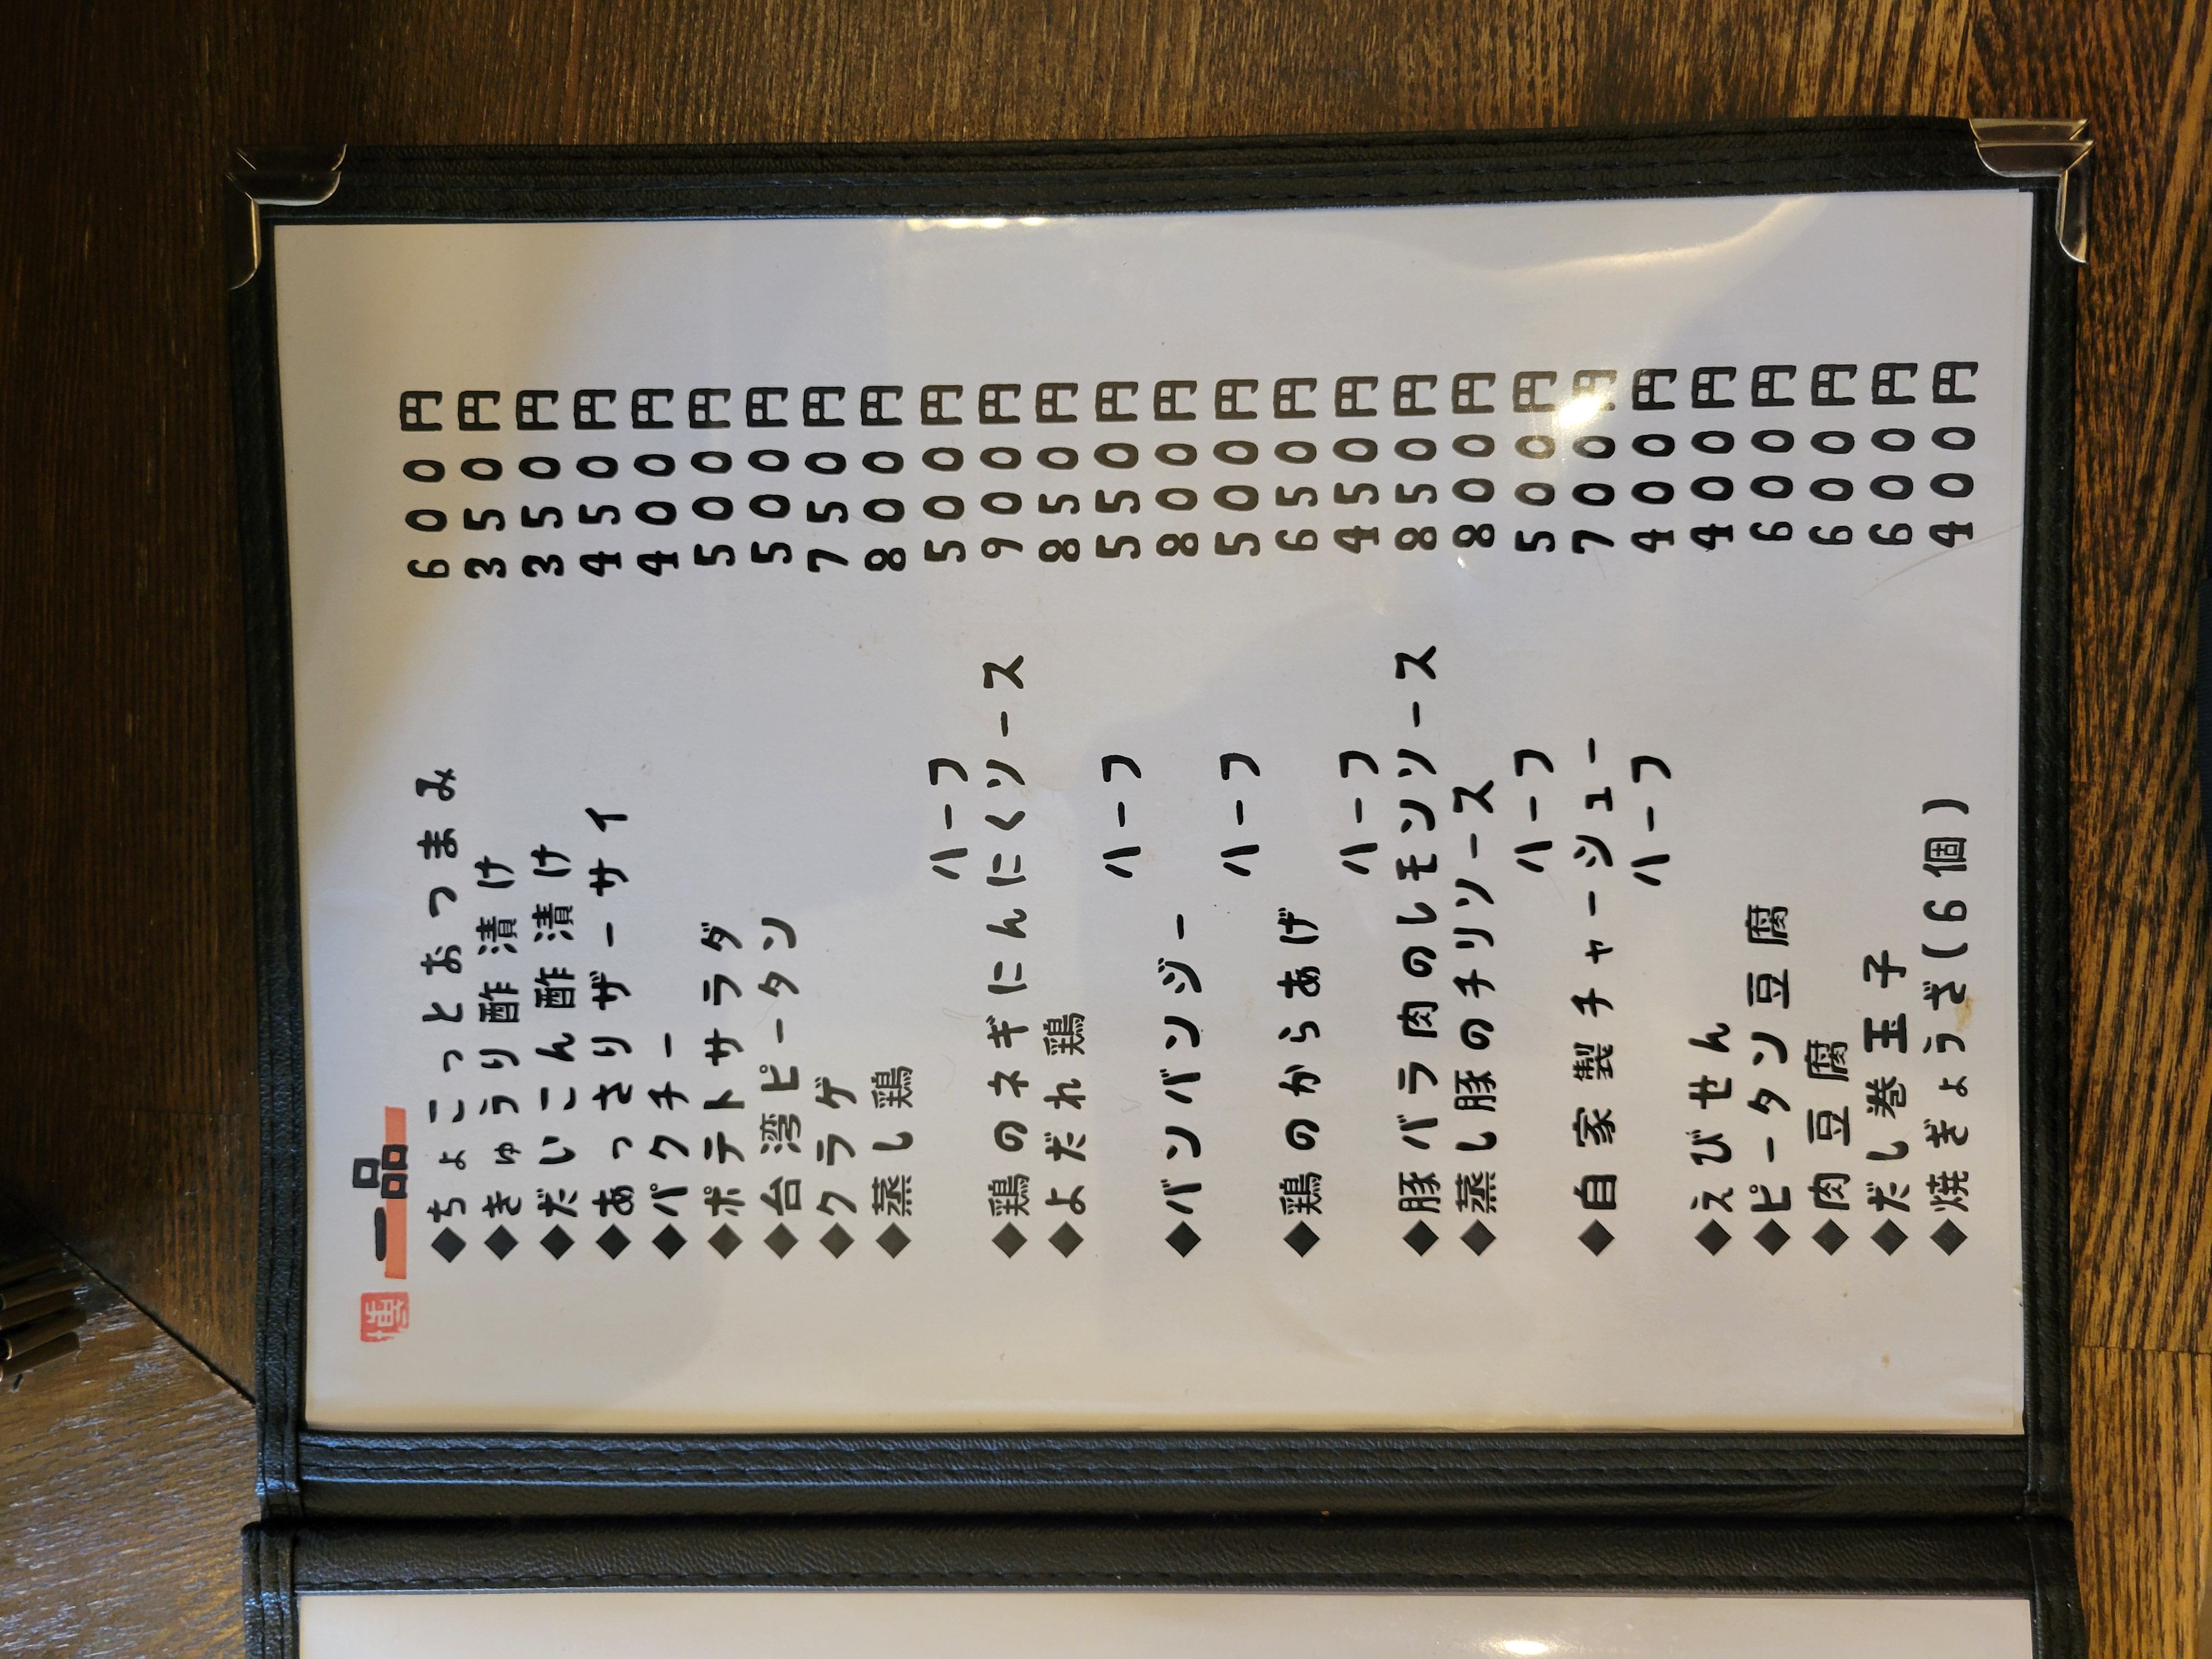 博 一品
◆ちょこっとおつまみ 600円
◆きゅうり酢漬け 350円
◆だいこん酢漬け 350円
◆あっさりザーサイ 450円
◆パクチー 400円
◆ポテトサラダ 500円
◆台湾ピータン 500円
◆クラゲ 750円
◆蒸し鶏 800円
ハーフ 500円
◆鶏のネギにんにくソース 900円
◆よだれ鶏 850円
ハーフ 550円
◆バンバンジー 800円
ハーフ 500円
◆鶏のからあげ 650円
ハーフ 450円
◆豚バラ肉のレモンソース 850円
◆蒸し豚のチリソース 800円
ハーフ 500円
◆自家製チャーシュー 700円
ハーフ 400円
◆えびせん 400円
◆ピータン豆腐 600円
◆肉豆腐 600円
◆だし巻玉子 600円
◆焼ぎょうざ(6個) 400円